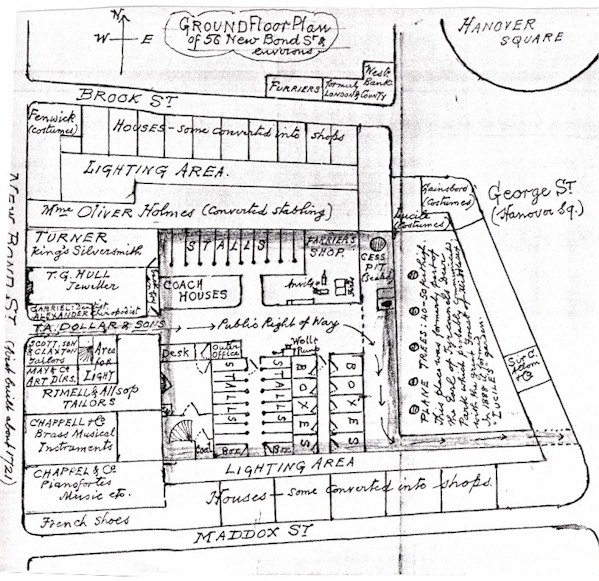 GROUND Floor Plan
of 56 New Bond St &
environs
N
W
E
S
HANOVER
SQUARE
FURRIERS
formerly
LONDON & COUNTY
Westr.
Bank
BROOK ST
Fenwick
(costumes)
HOUSES - some converted into shops
LIGHTING AREA.
Mme OLIVER HOLMES (Converted stabling)
Gainsboro
(Costumes)
Lucile
(costumes)
George St
(Hanover Sq.)
NEW BOND ST (first built about 1721)
TURNER
King's Silversmith
T.G. HULL
Jeweller
GABRIEL: Dentist
ALEXANDER: Chiropodist
STALLS
FARRIERS
SHOP.
CESS
PIT
COACH
HOUSES
Anvil
T.A. DOLLAR & SONS
Public's Right of Way
PLANE TREES: No. 50 perished.
This place was formerly part of
In 1888 it formed
"LUCILES" garden.
Sir C.
& Co
SCOTT, SON
& CLAXTON
Tailors
MAY & Co
ART DLRS.
Area
for
LIGHT
RIMELL & Allsop
TAILORS
CHAPPELL & Co
Brass Musical
Instruments
CHAPPEL & Co.
Pianofortes
Music etc.
French Shoes
Desk
Outer
Office
Well &
Pump
STALLS
STALLS
BOXES
BOXES
Coal
Box
Box
LIGHTING AREA
Houses - some converted into shops.
MADDOX ST